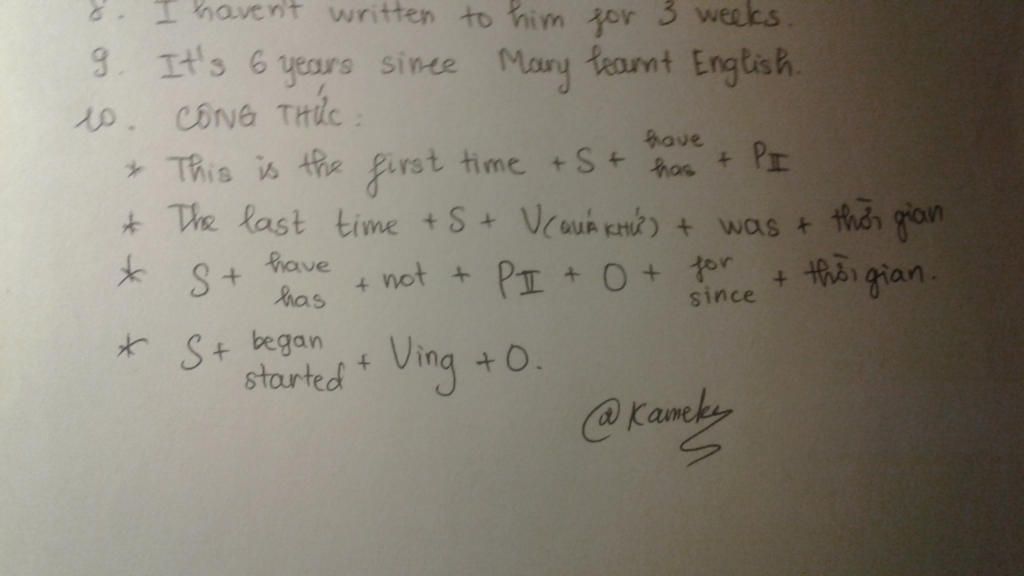 8. I haven't written to him for 3 weeks.
9. It's 6 years since Mary learnt English.
10. CÔNG THỨC:
* This is the first time + S + have has + PII
* The last time + S + V(QUÁ KHỨ) + was + thời gian
* S + have has + not + PII + O + for since + thời gian.
* S + began started + Ving + O.
@Kameky